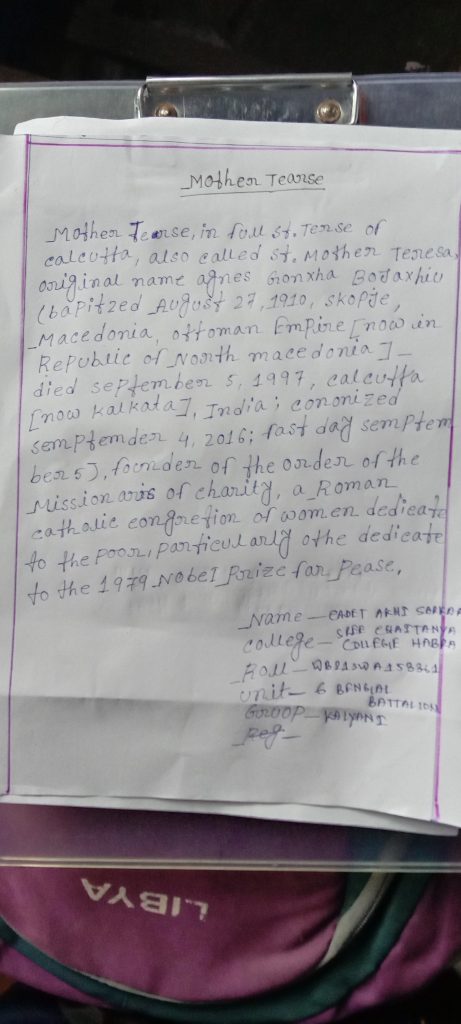 Mother Tearse
Mother Tearse, in full st. Terse of
calcutta, also called st. Mother Teresa,
original name agnes Gonxha Bojaxhiu
(bapitzed August 27, 1910, skopje,
Macedonia, ottoman Empire [now in
Republic of North macedonia]_
died september 5, 1997, calcutta
[now kalkata], India; cononized
semptemder 4, 2016; fast day semptem
ber 5), founder of the order of the
Missionaris of charity, a Roman
catholic congretion of women dedicate
to the poor, particularly othe dedicate
to the 1979 Nobel Prize far Pease.
Name — CADET ARHI SARKAR
college — SREE CHAITANYA
COLLEGE HABRA
Roll —
unit — 6 BENGAL
BATTALION
Group — KALYANI
Reg —
LIBYA